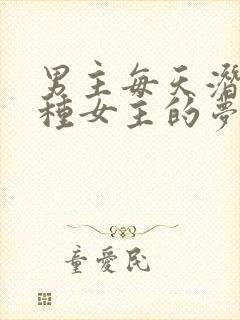 男主每天潛
種女主的夢
童愛民